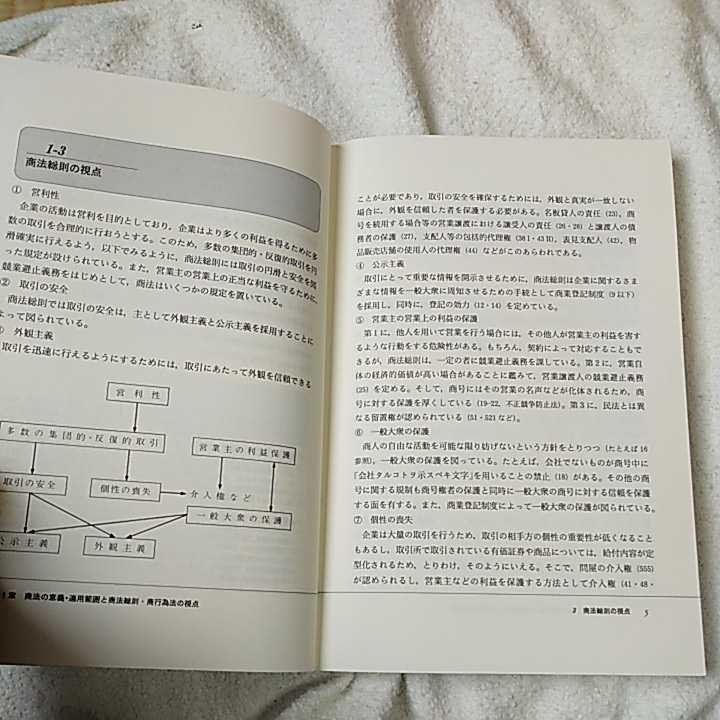 1-3
商法総則の視点
① 営利性
企業の活動は営利を目的としており，企業はより多くの利益を得るために多
数の取引を合理的に行おうとする。このため，多数の集団的・反復的取引を円
滑確実に行えるよう，以下でみるように，商法総則には取引の円滑と安全を図
った規定が設けられている。また，営業主の営業上の正当な利益を守るために，
競業避止義務をはじめとして，商法はいくつかの規定を置いている。
② 取引の安全
商法総則では取引の安全は，主として外観主義と公示主義を採用することに
よって図られている。
外観主義
取引を迅速に行えるようにするためには，取引にあたって外観を信頼できる
営利性
多数の集団的・反復的取引
営業主の利益保護
取引の安全
個性の喪失
介入権など
一般大衆の保護
公示主義
外観主義
章 商法の意義・適用範囲と商法総則・商行為法の視点
ことが必要であり，取引の安全を確保するためには，外観と真実が一致しない
場合に，外観を信頼した者を保護する必要がある。名板貸人の責任（23），商
号を続用する場合等の営業譲渡における譲受人の責任（26・28）と譲渡人の債
務者の保護（27），支配人等の包括的代理権（38Ⅰ・43Ⅱ），表見支配人（42），物
品販売店舗の使用人の代理権（44）などがこのあらわれである。
④ 公示主義
取引にとって重要な情報を開示させるために，商法総則は企業に関するさま
ざまな情報を一般大衆に周知させるための手続として商業登記制度（9以下）
を採用し，同時に，登記の効力（12・14）を定めている。
⑤ 営業主の営業上の利益の保護
第1に，他人を用いて営業を行う場合には，その他人が営業主の利益を害す
るような行動をする危険性がある。もちろん，契約によって対応することもで
きるが，商法総則は，一定の者に競業避止義務を課している。第2に，営業自
体の経済的価値が高い場合があることに鑑みて，営業譲渡人の競業避止義務
（25）を定める。そして，商号にはその営業の名声などが化体されるため，商
号に対する保護を厚くしている（19-22，不正競争防止法）。第3に，民法とは異
なる留置権が認められている（51・521など）。
⑥ 一般大衆の保護
商人の自由な活動を可能な限り妨げないという方針をとりつつ（たとえば16
参照），一般大衆の保護を図っている。たとえば，会社でないものが商号中に
「会社タルコトヲ示スベキ文字」を用いることの禁止（18）がある。その他の商
号に関する規制も商号権者の保護と同時に一般大衆の商号に対する信頼を保護
する面を有する。また，商業登記制度によって一般大衆の保護が図られている。
⑦ 個性の喪失
企業は大量の取引を行うため，取引の相手方の個性の重要性が低くなること
もあるし，取引所で取引されている有価証券や商品については，給付内容が定
型化されるため，とりわけ，そのようにいえる。そこで，問屋の介入権（555）
が認められるし，営業主などの利益を保護する方法として介入権（41・48・
3 商法総則の視点 5